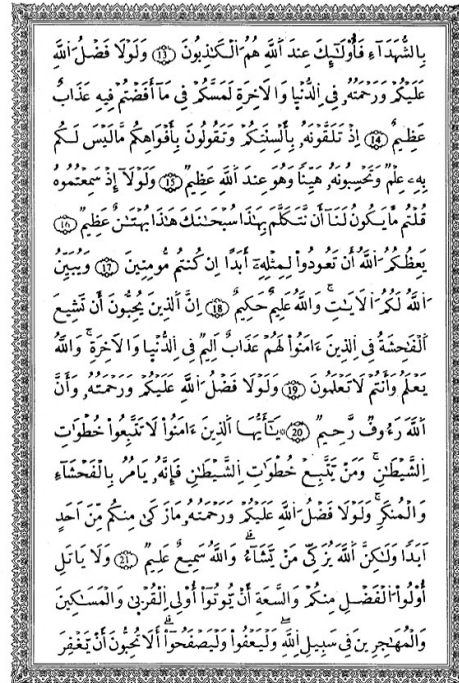 بِالشُّهَدَآءِ فَأُوْلَٰٓئِكَ عِندَ اَ۬للَّهِ هُمُ اُ۬لْكَٰذِبُونَ ۝13 وَلَوْلَا فَضْلُ اُ۬للَّهِ
عَلَيْكُمْ وَرَحْمَتُهُۥ فِي اِ۬لدُّنْي۪ا وَالَاخِرَةِ لَمَسَّكُمْ فِي مَآ أَفَضْتُمْ فِيهِ عَذَابٌ
عَظِيمٌ ۝14 اِذْ تَلَقَّوْنَهُۥ بِأَلْسِنَتِكُمْ وَتَقُولُونَ بِأَفْوَاهِكُم مَّا لَيْسَ لَكُم
بِهِۦ عِلْمٌ وَتَحْسِبُونَهُۥ هَيِّناً وَهُوَ عِندَ اَ۬للَّهِ عَظِيمٌ ۝15 وَلَوْلَآ إِذْ سَمِعْتُمُوهُ
قُلْتُم مَّا يَكُونُ لَنَآ أَن نَّتَكَلَّمَ بِهَٰذَا سُبْحَٰنَكَ هَٰذَا بُهْتَٰنٌ عَظِيمٌ ۝16
يَعِظُكُمُ اُ۬للَّهُ أَن تَعُودُواْ لِمِثْلِهِۦٓ أَبَداً اِن كُنتُم مُّومِنِينَ ۝17 وَيُبَيِّنُ
اُ۬للَّهُ لَكُمُ اُ۬لَايَٰتِ وَاللَّهُ عَلِيمٌ حَكِيمٌ ۝18 اِنَّ اَ۬لذِينَ يُحِبُّونَ أَن تَشِيعَ
اَ۬لْفَٰحِشَةُ فِي اِ۬لذِينَ ءَامَنُواْ لَهُمْ عَذَابٌ اَلِيمٌ فِي اِ۬لدُّنْي۪ا وَالَاخِرَةِ وَاللَّهُ
يَعْلَمُ وَأَنتُمْ لَا تَعْلَمُونَ ۝19 وَلَوْلَا فَضْلُ اُ۬للَّهِ عَلَيْكُمْ وَرَحْمَتُهُۥ وَأَنَّ
اَ۬للَّهَ رَءُوفٌ رَّحِيمٌ ۝20 يَٰٓأَيُّهَا اَ۬لذِينَ ءَامَنُواْ لَا تَتَّبِعُواْ خُطْوَٰتِ
اِ۬لشَّيْطَٰنِ وَمَنْ يَّتَّبِعْ خُطْوَٰتِ اِ۬لشَّيْطَٰنِ فَإِنَّهُۥ يَامُرُ بِالْفَحْشَآءِ
وَالْمُنكَرِ وَلَوْلَا فَضْلُ اُ۬للَّهِ عَلَيْكُمْ وَرَحْمَتُهُۥ مَا زَكَىٰ مِنكُم مِّنَ اَحَدٍ
اَبَداً وَلَٰكِنَّ اَ۬للَّهَ يُزَكِّي مَنْ يَّشَآءُ وَاللَّهُ سَمِيعٌ عَلِيمٌ ۝21 وَلَا يَاتَلِ
أُوْلُواْ اُ۬لْفَضْلِ مِنكُمْ وَالسَّعَةِ أَنْ يُّوتُوٓاْ أُوْلِي اِ۬لْقُرْب۪ىٰ وَالْمَسَٰكِينَ
وَالْمُهَٰجِرِينَ فِي سَبِيلِ اِ۬للَّهِ وَلْيَعْفُواْ وَلْيَصْفَحُوٓاْ أَلَا تُحِبُّونَ أَنْ يَّغْفِرَ